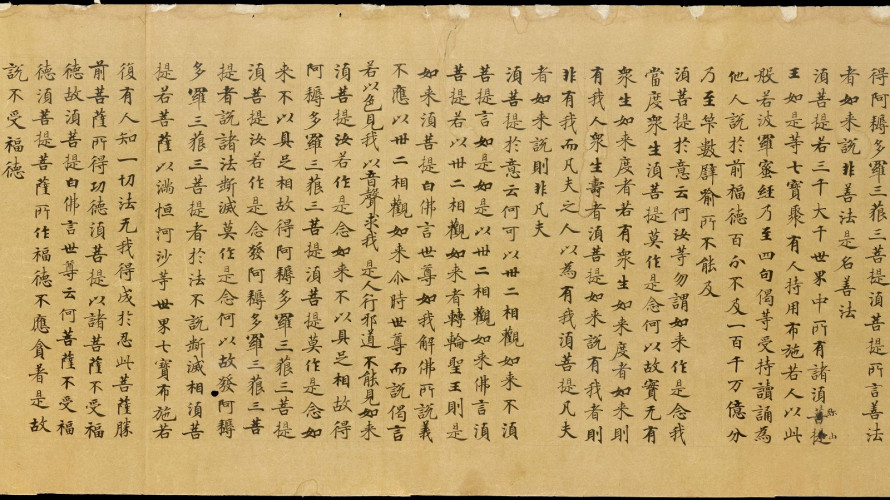 得阿耨多羅三藐三菩提須菩提所言善法
者如來說非善法是名善法
須菩提若三千大千世界中所有諸須菩提弥山
王如是等七寶聚有人持用布施若人以此
般若波羅蜜經乃至四句偈等受持讀誦為
他人說於前福德百分不及一百千万億分
乃至筭數譬喻所不能及
須菩提於意云何汝等勿謂如來作是念我
當度衆生須菩提莫作是念何以故實无有
衆生如來度者若有衆生如來度者如來則
有我人衆生壽者須菩提如來說有我者則
非有我而凡夫之人以為有我須菩提凡夫
者如來說則非凡夫
須菩提於意云何可以卅二相觀如來不須
菩提言如是如是以卅二相觀如來佛言須
菩提若以卅二相觀如來者轉輪聖王則是
如來須菩提白佛言世尊如我解佛所說義
不應以卅二相觀如來尒時世尊而說偈言
若以色見我以音聲求我是人行邪道不能見如來
須菩提汝若作是念如來不以具足相故得
阿耨多羅三藐三菩提須菩提莫作是念如
來不以具足相故得阿耨多羅三藐三菩提
須菩提汝若作是念發阿耨多羅三藐三菩
提者說諸法斷滅莫作是念何以故發阿耨
多羅三藐三菩提者於法不說斷滅相須菩
提若菩薩以滿恒河沙等世界七寶布施若
復有人知一切法无我得成於忍此菩薩勝
前菩薩所得功德須菩提以諸菩薩不受福
德故須菩提白佛言世尊云何菩薩不受福
德須菩提菩薩所作福德不應貪著是故
說不受福德